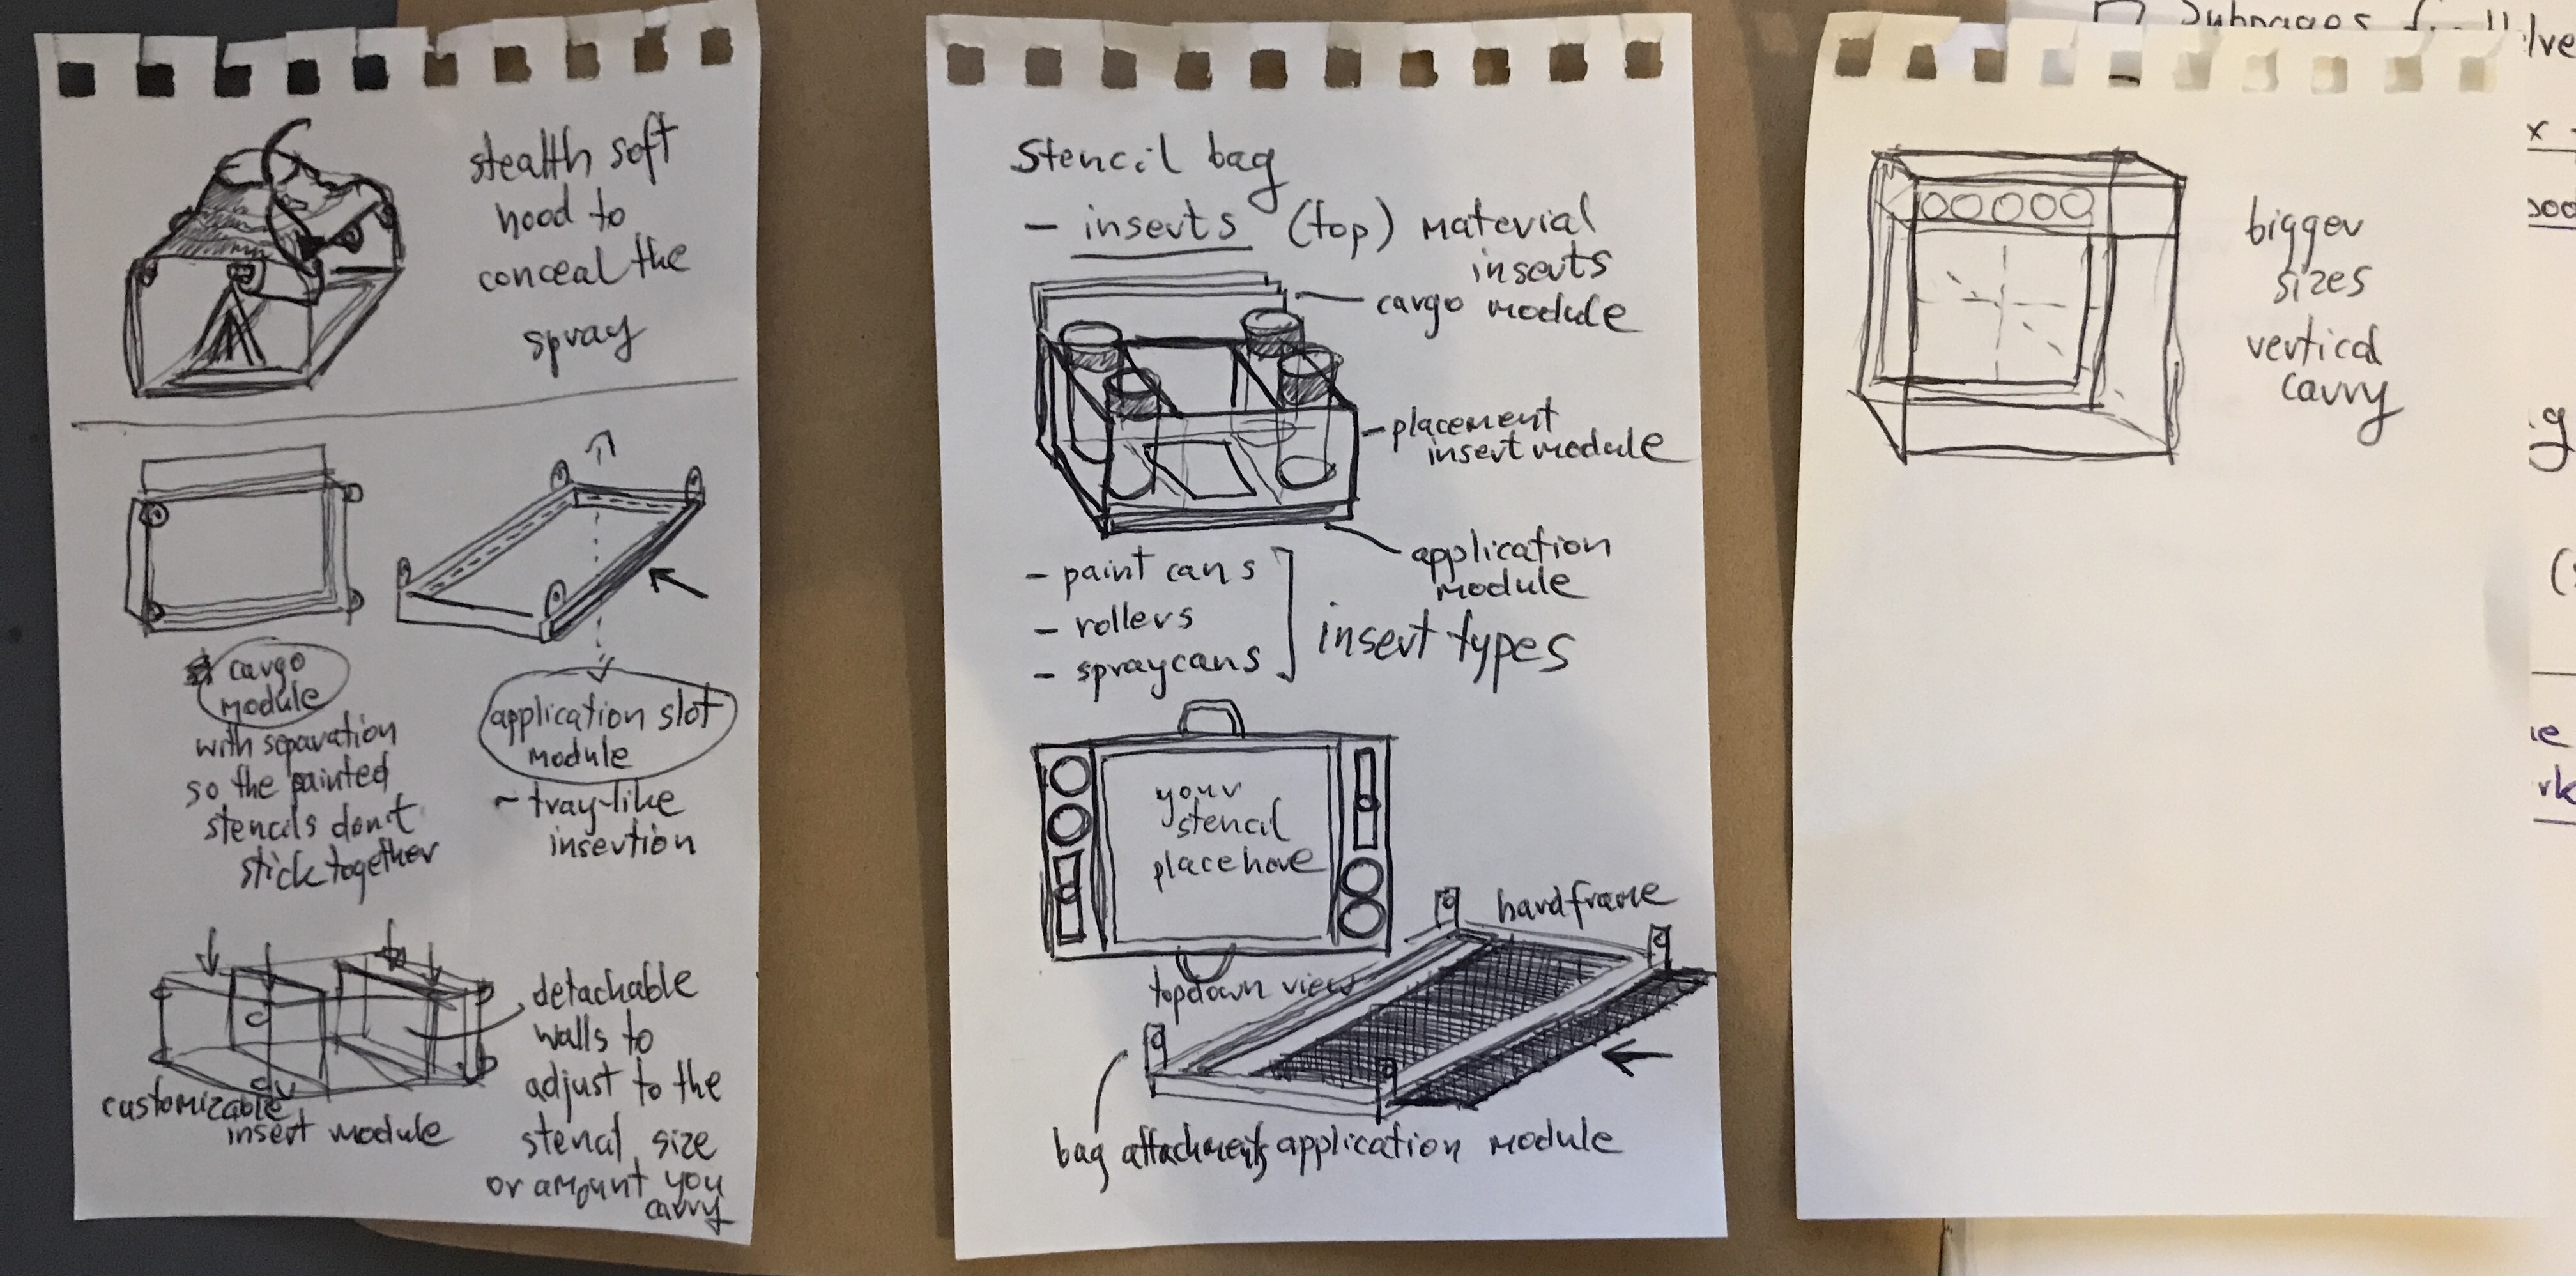 stealth soft
hood to
conceal the
spray
cargo
module
with separation
so the painted
stencils don't
stick together
application slot
module
- tray-like
insertion
detachable
walls to
adjust to the
stencil size
or amount you
carry
customizable
insert module
Stencil bag
- inserts (top) material
inserts
cargo module
placement
insert module
application
module
- paint cans
- rollers
- spraycans
insert types
your
stencil
place here
topdown view
hardframe
bag attachments
application module
bigger
sizes
vertical
carry